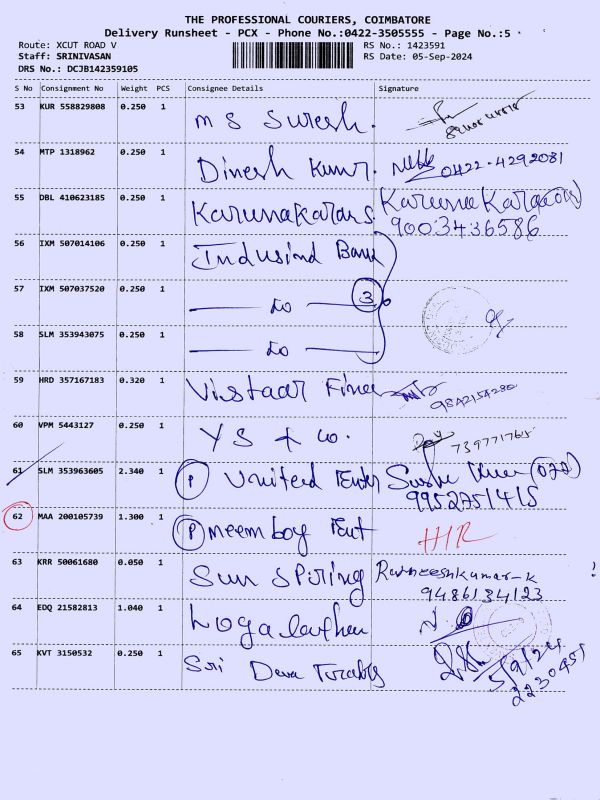 THE PROFESSIONAL COURIERS, COIMBATORE
Delivery Runsheet - PCX - Phone No.:0422-3505555 - Page No.:5
Route: XCUT ROAD V RS No.: 1423591
Staff: SRINIVASAN RS Date: 05-Sep-2024
DRS No.: DCJB142359105
S No Consignment No Weight PCS Consignee Details Signature
53 KUR 558829808 0.250 1 M S Suresh.
54 MTP 1318962 0.250 1 Dinesh Kumr. 0422-4292081
55 DBL 410623185 0.250 1 Karunakarans
9003436586
56 IXM 507014106 0.250 1 Indusind Bank
57 IXM 507037520 0.250 1 — do — 3
58 SLM 353943075 0.250 1 — do —
59 HRD 357167183 0.320 1 Vistaar Finer 9842154280
60 VPM 5443127 0.250 1 Y S & Co.
61 SLM 353963605 2.340 1 P United Enter
9952751415
62 MAA 200105739 1.300 1 P meem boy
63 KRR 50061680 0.050 1 Sun Spiring Ratneeshkumar-k !
9486134123
64 EDQ 21582813 1.040 1
65 KVT 3150532 0.250 1 Sri Deva 5/9/24